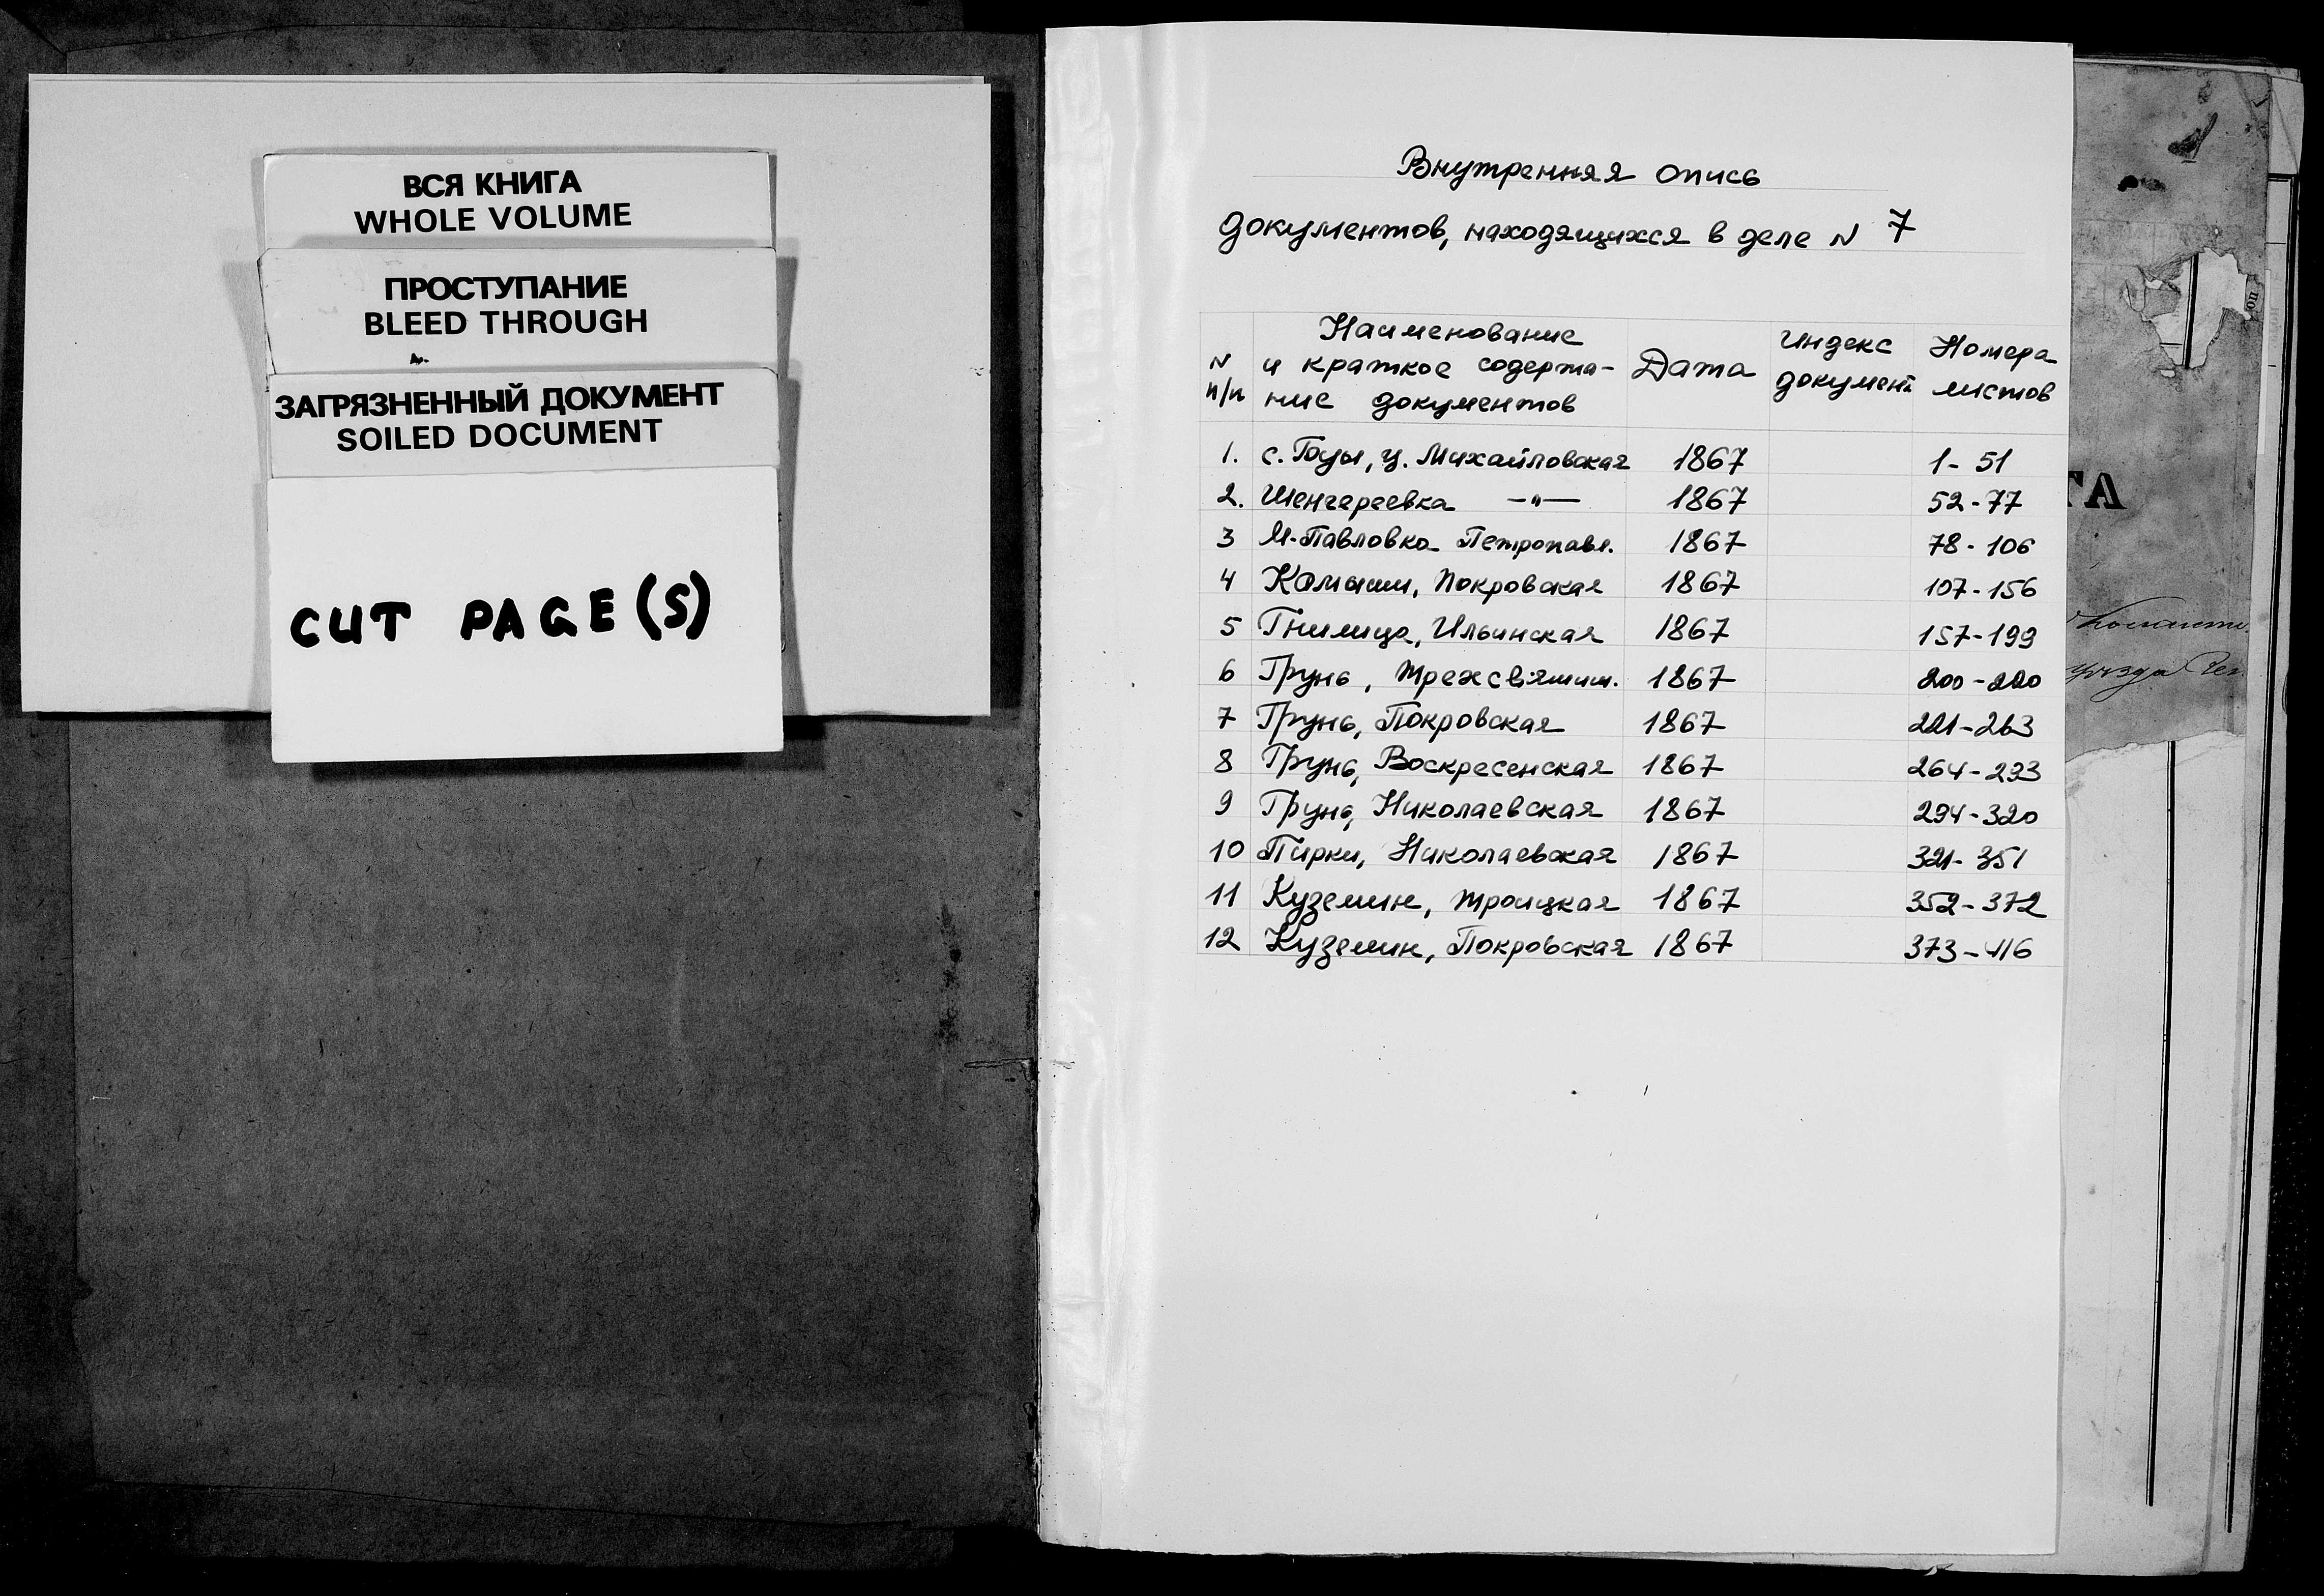 ВСЯ КНИГА
WHOLE VOLUME
ПРОСТУПАНИЕ
BLEED THROUGH
ЗАГРЯЗНЕННЫЙ ДОКУМЕНТ
SOILED DOCUMENT
CUT PAGE(S)
Внутренняя опись
документов, находящихся в деле N 7
N п/п Наименование и краткое содержание документов Дата Индекс документ Номера листов
1. с. Буды, ц. Михайловская 1867 1-51
2. Шенгереевка —"— 1867 52-77
3 М-Павловка Петропавл. 1867 78-106
4 Камыши, Покровская 1867 107-156
5 Гнилица, Ильинская 1867 157-199
6 Грунь, Трехсвятит. 1867 200-220
7 Грунь, Покровская 1867 221-263
8 Грунь, Воскресенская 1867 264-293
9 Грунь, Николаевская 1867 294-320
10 Пирки, Николаевская 1867 321-351
11 Куземин, Троицкая 1867 352-372
12 Куземин, Покровская 1867 373-416
ТА
уезда